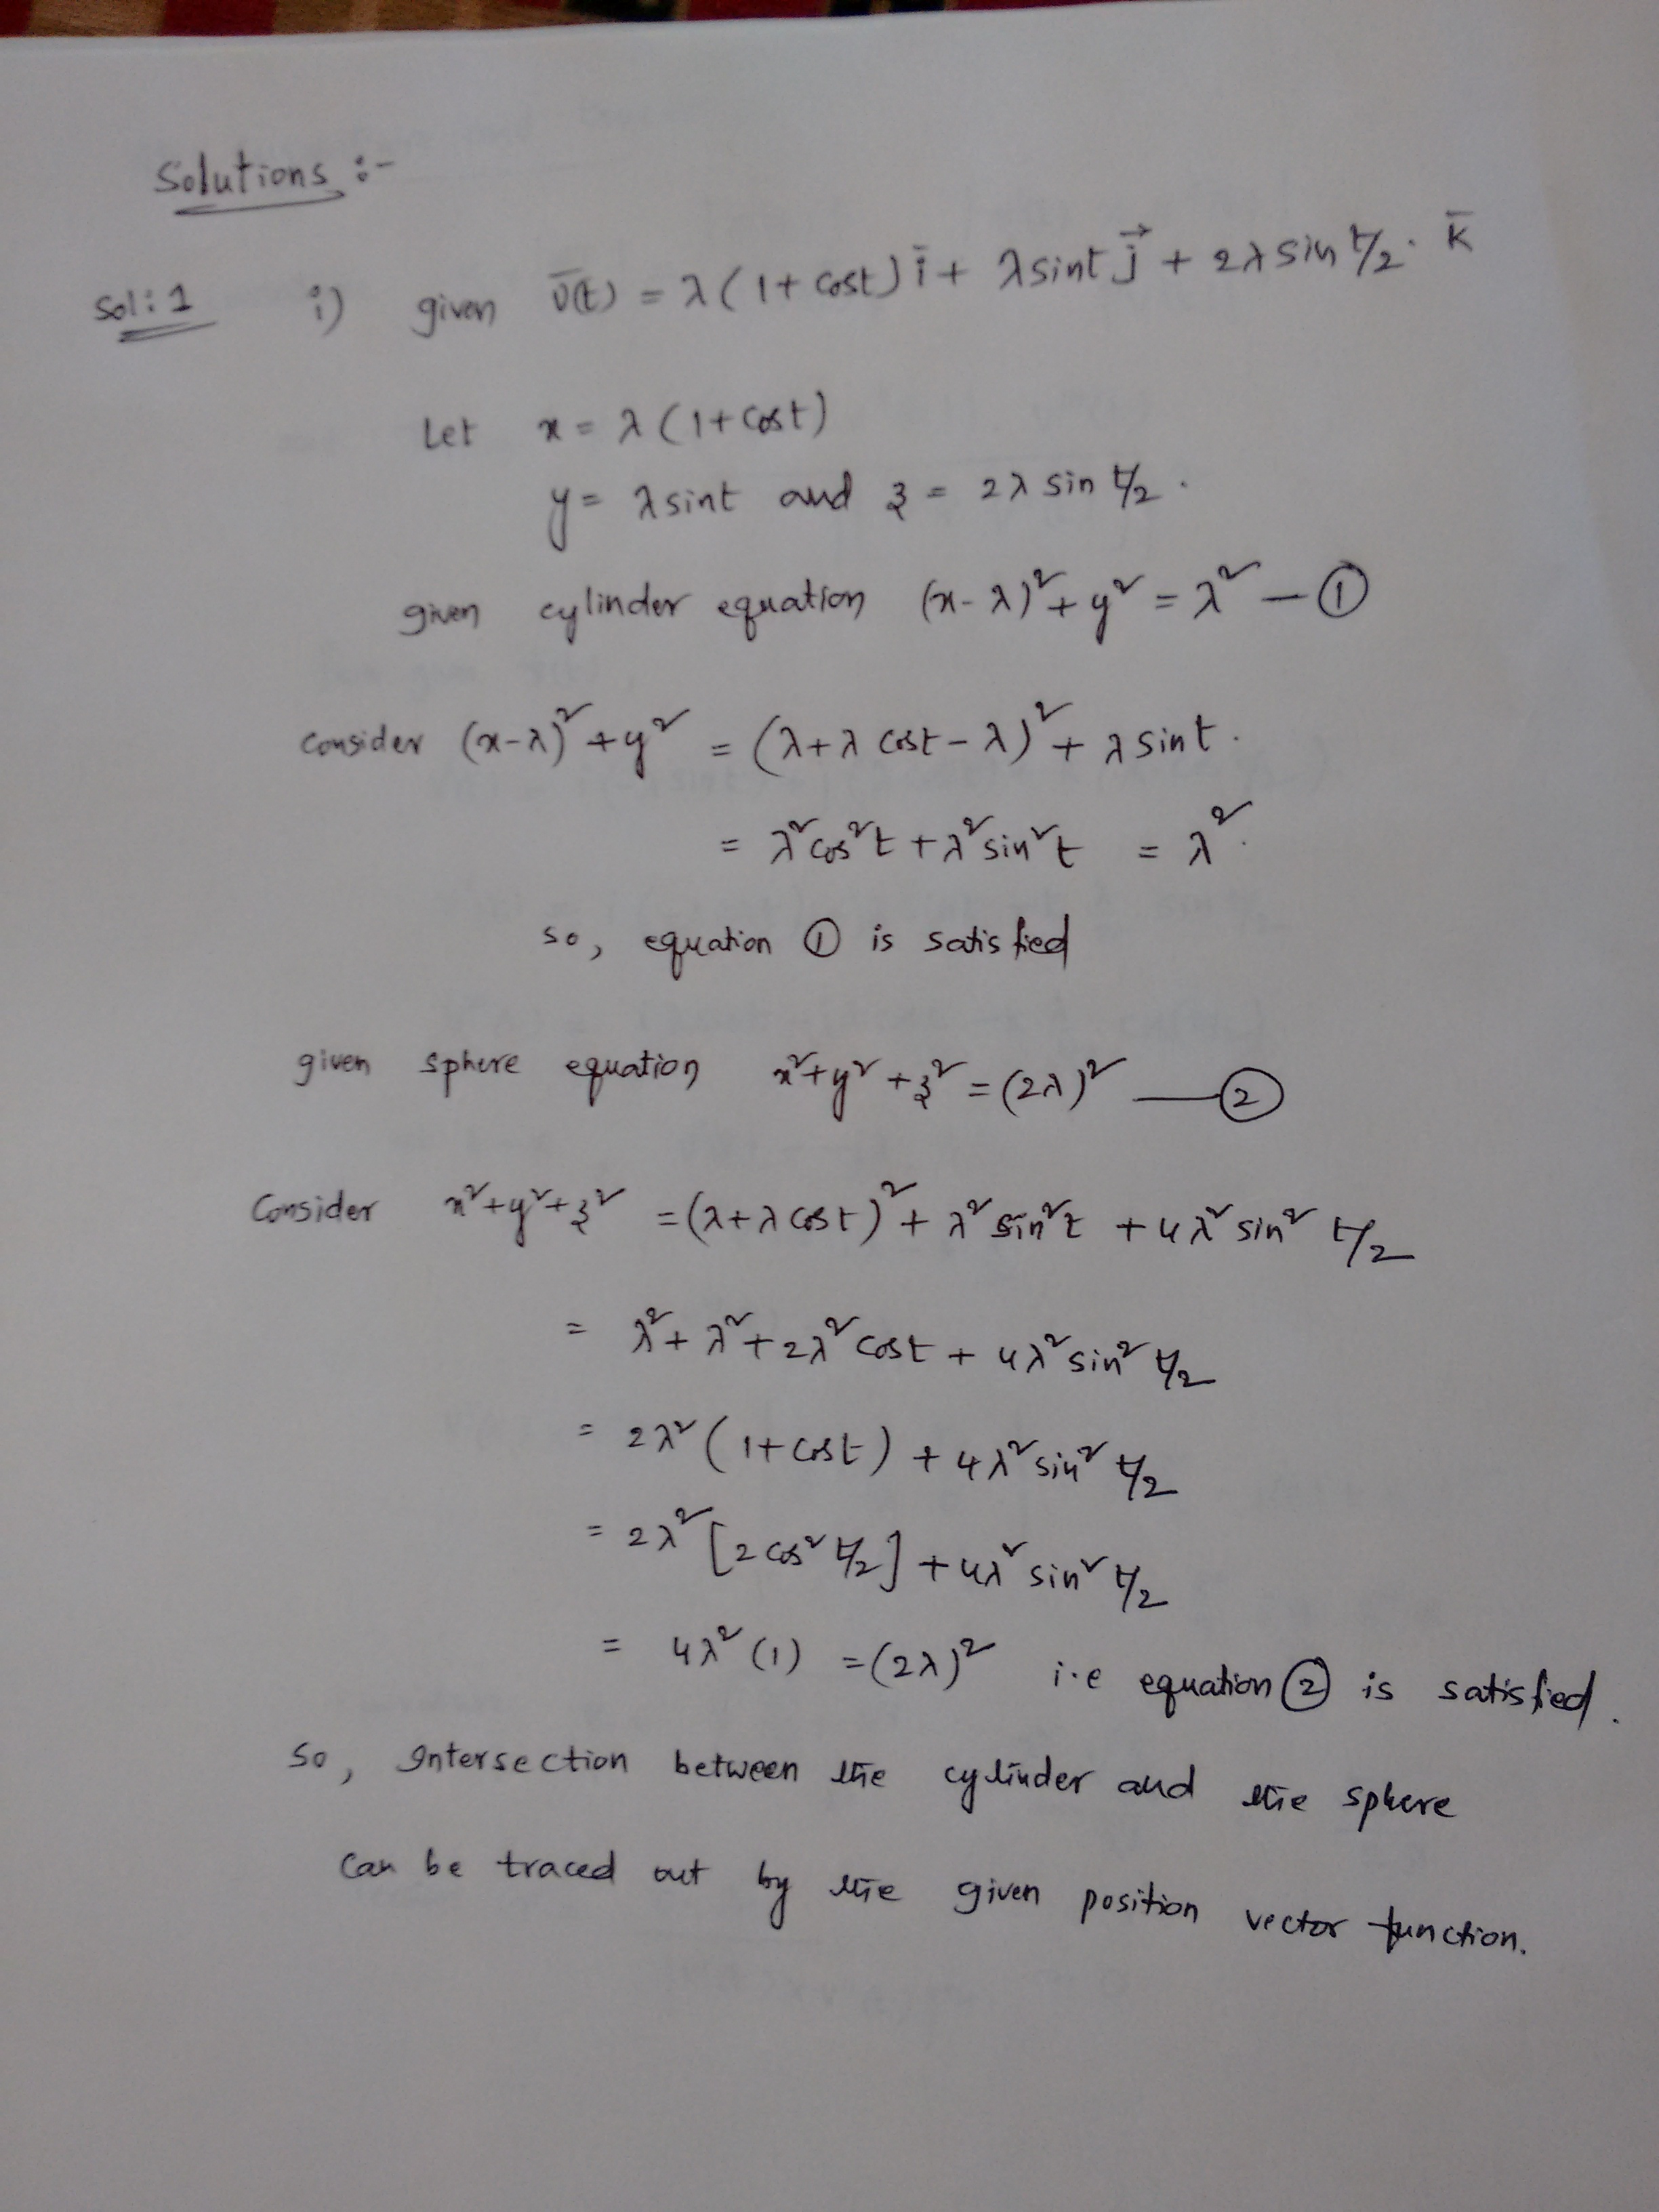 Solutions :-
Sol: 1 i) given v̅(t) = λ(1+cost) i̅ + λsint j⃗ + 2λ sin t/2 . k̅
Let x = λ(1+cost)
y = λsint and z = 2λ sin t/2 .
given cylinder equation (x-λ)² + y² = λ² — ①
consider (x-λ)² + y² = (λ+λ cost - λ)² + λ sint .
= λ²cos²t + λ²sin²t = λ² .
so, equation ① is satisfied
given sphere equation x²+y²+z² = (2λ)² — ②
Consider x²+y²+z² = (λ+λcost)² + λ² sin²t + 4λ² sin² t/2
= λ² + λ² + 2λ² cost + 4λ² sin² t/2
= 2λ² (1+cost) + 4λ² sin² t/2
= 2λ² [2 cos² t/2] + 4λ² sin² t/2
= 4λ² (1) = (2λ)² i.e equation ② is satisfied.
So, Intersection between the cylinder and the sphere
can be traced out by the given position vector function.